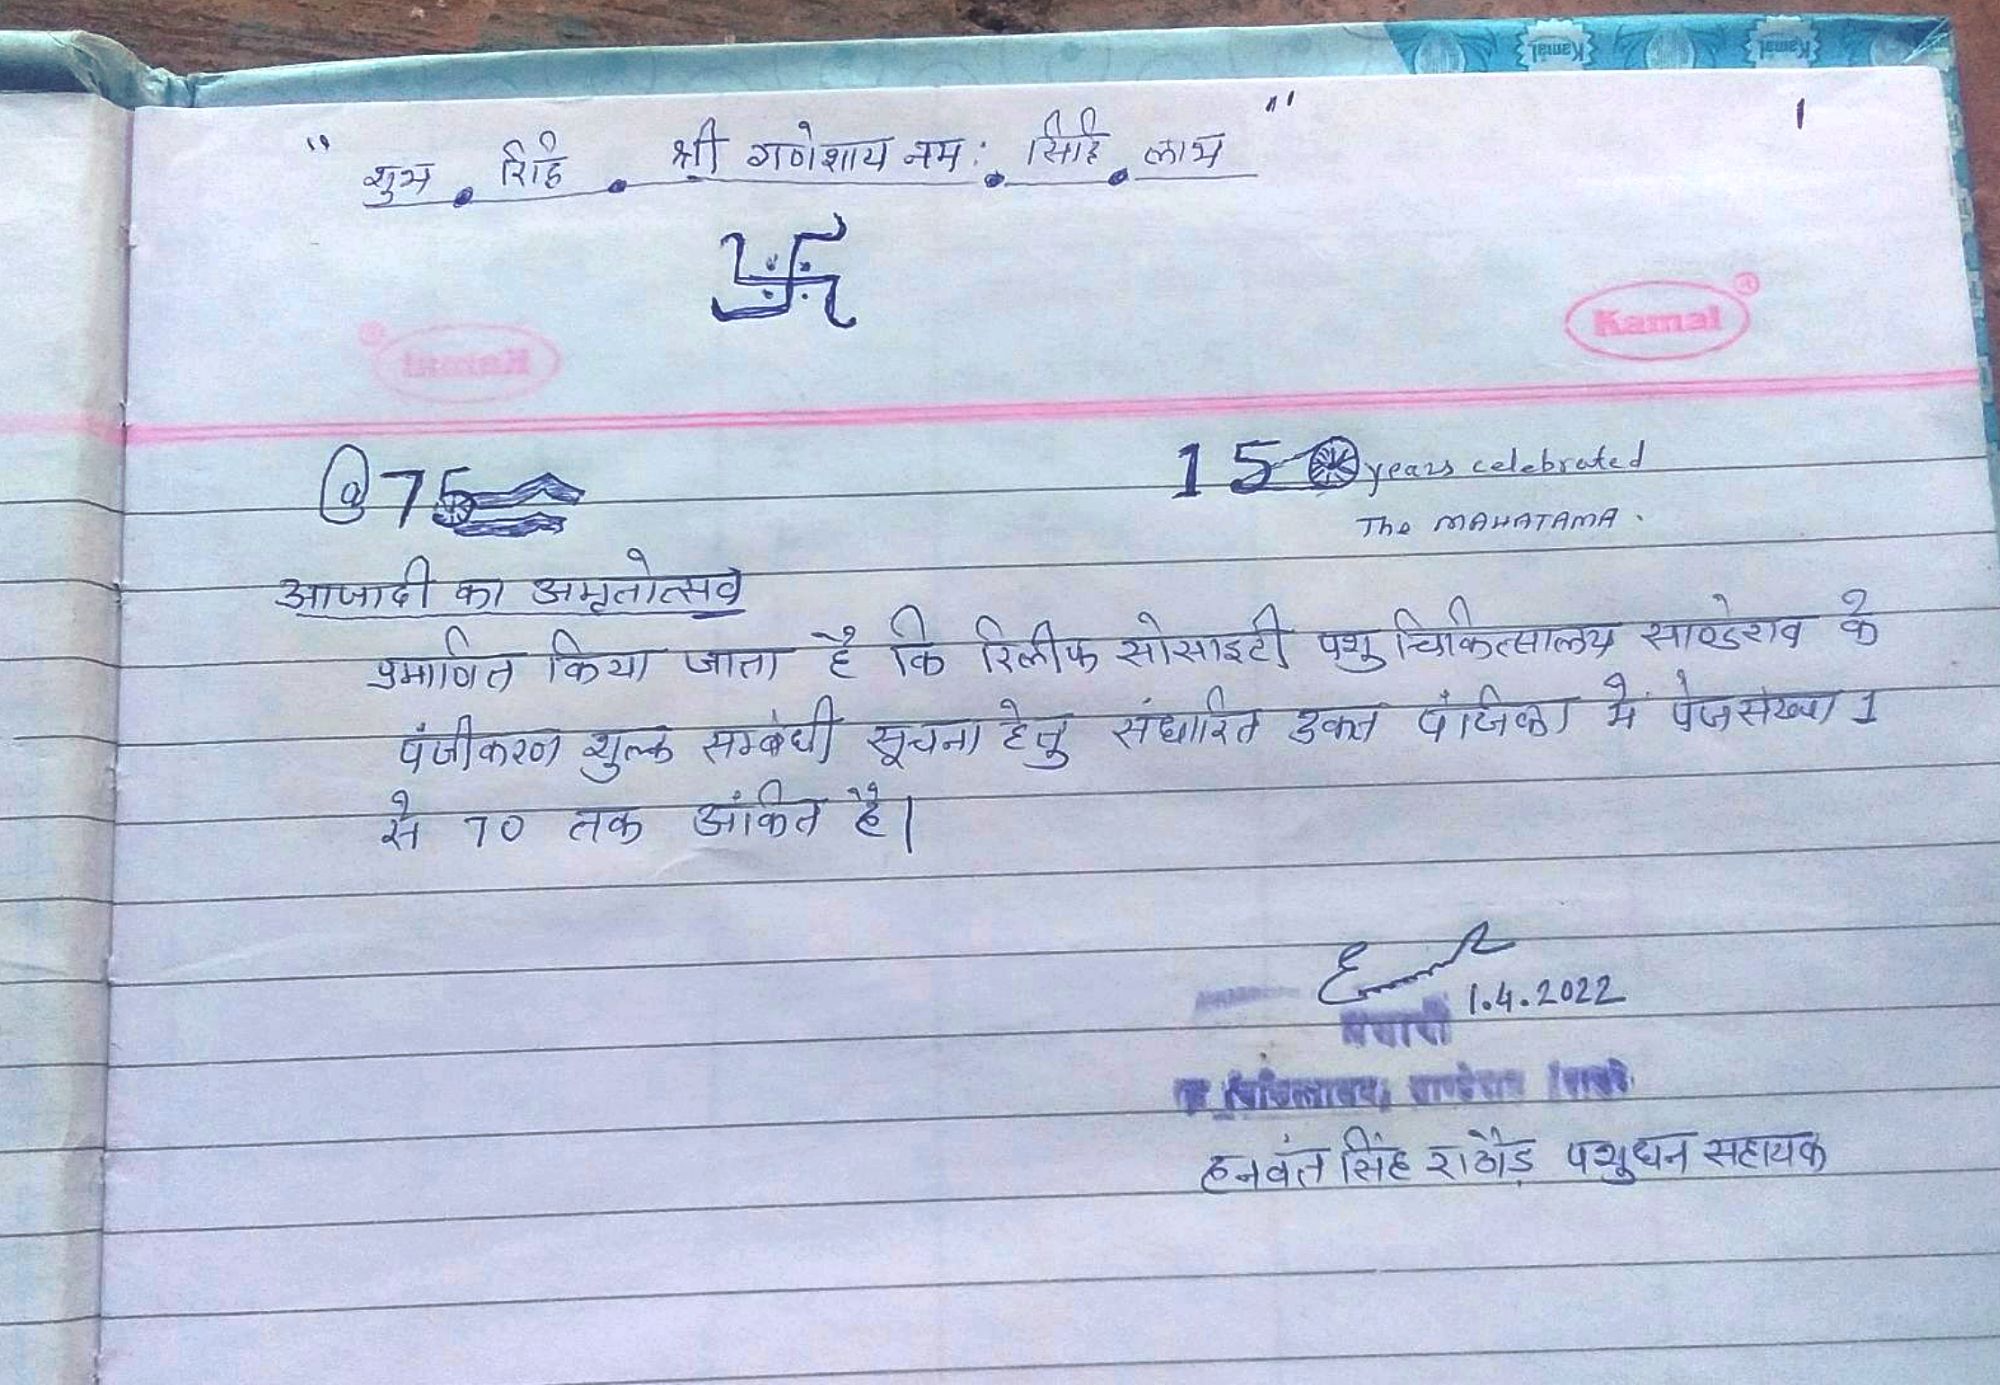 Kamal Kamal
1
" शुभ . रिद्धि . श्री गणेशाय नमः . सिद्धि . लाभ "
Kamal
@75
150 years celebrated
The MAHATAMA.
आजादी का अमृतोत्सव
प्रमाणित किया जाता है कि रिलीफ सोसाइटी पशु चिकित्सालय साण्डेराव के
पंजीकरण शुल्क सम्बंधी सूचना हेतु संधारित उक्त पंजिका में पेज संख्या 1
से 70 तक अंकित है।
1.4.2022
प्रभारी
चिकित्सालय, साण्डेराव
हनवंत सिंह राठौड़ पशुधन सहायक